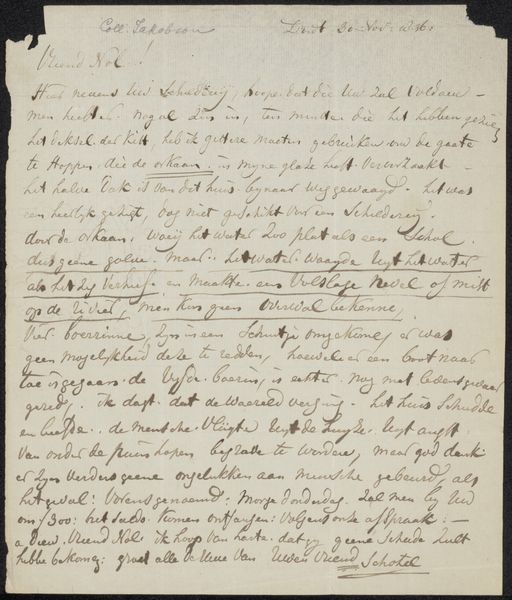 Coll. Jakobson
Dordt 30 Nov: 1836
Vriend Nol!
Hier nevens Uw Schilderij, hoope dat die Uw zal voldoen –
men heeft er nogal zin in, ten minsten die het hebben gezien
het deksel der kist, heb ik gistere moeten gebruiken om de gaate
te stoppen die de orkaan in myne glaze heeft veroorzaakt –
het halve Dak is van dit huis bynaar weg gewaayd. het was
een heerlyk gezigt, dog niet geschikt voor een Schilderey.
door de orkaan. waey het water zoo plat als een Schol.
dus geene golve. maar. het water waayde uyt het water
als het zig verhief. en maakte een Volslage Nevel of mist
op de rivier, men kon geen overwal bekenne,
Vier boerinne, zyn in een Schuitje omgekome, er was
geen mogelykheid deze te redden, hoewel er een boot naar
toe is gegaan. de Vyfde boerin, is echter nog met levensgevaar
gered, ik dagt dat de Waereld verging. het huis Schudde
en beefde. de mensche vlugte uyt de huyze. uyt angst
van onder de puinhopen begrave te worden, maar god dank
er zyn verders geene ongelukken aan mensche gebeurd, als
het geval: vorens genoemd: Morge donderdag. zal men by Uw
om f 300: het saldo komen ontfangen: volgens onze afspraak: –
adieu. Vriend Nol: ik hoop van harte dat gy geene Schade zult
hebbe bekome; groet alle de Uwe van Uwen Vriend Schotel